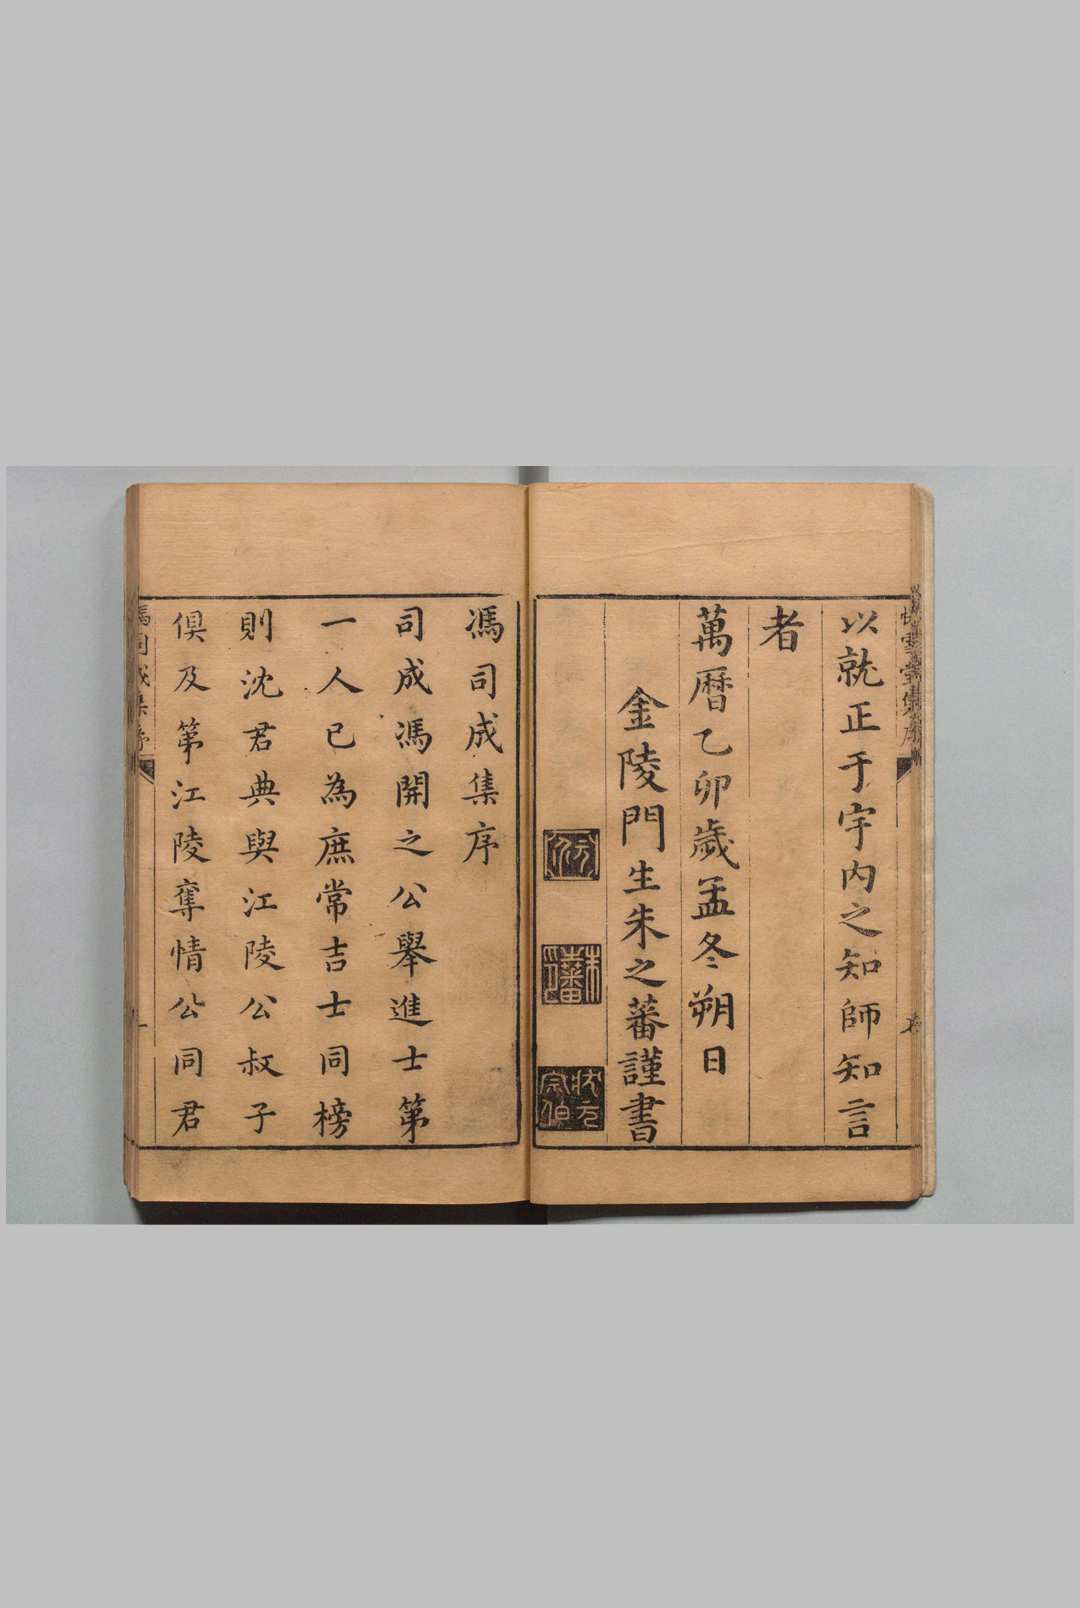 以就正于宇内之知師知言
者
萬曆乙卯歲孟冬朔日
金陵門生朱之蕃謹書
元介
朱之蕃印
狀元宗伯
馮司成集序
司成馮開之公舉進士第
一人已為庶常吉士同榜
則沈君典與江陵公叔子
俱及第江陵奪情公同君
馮司成集序
一